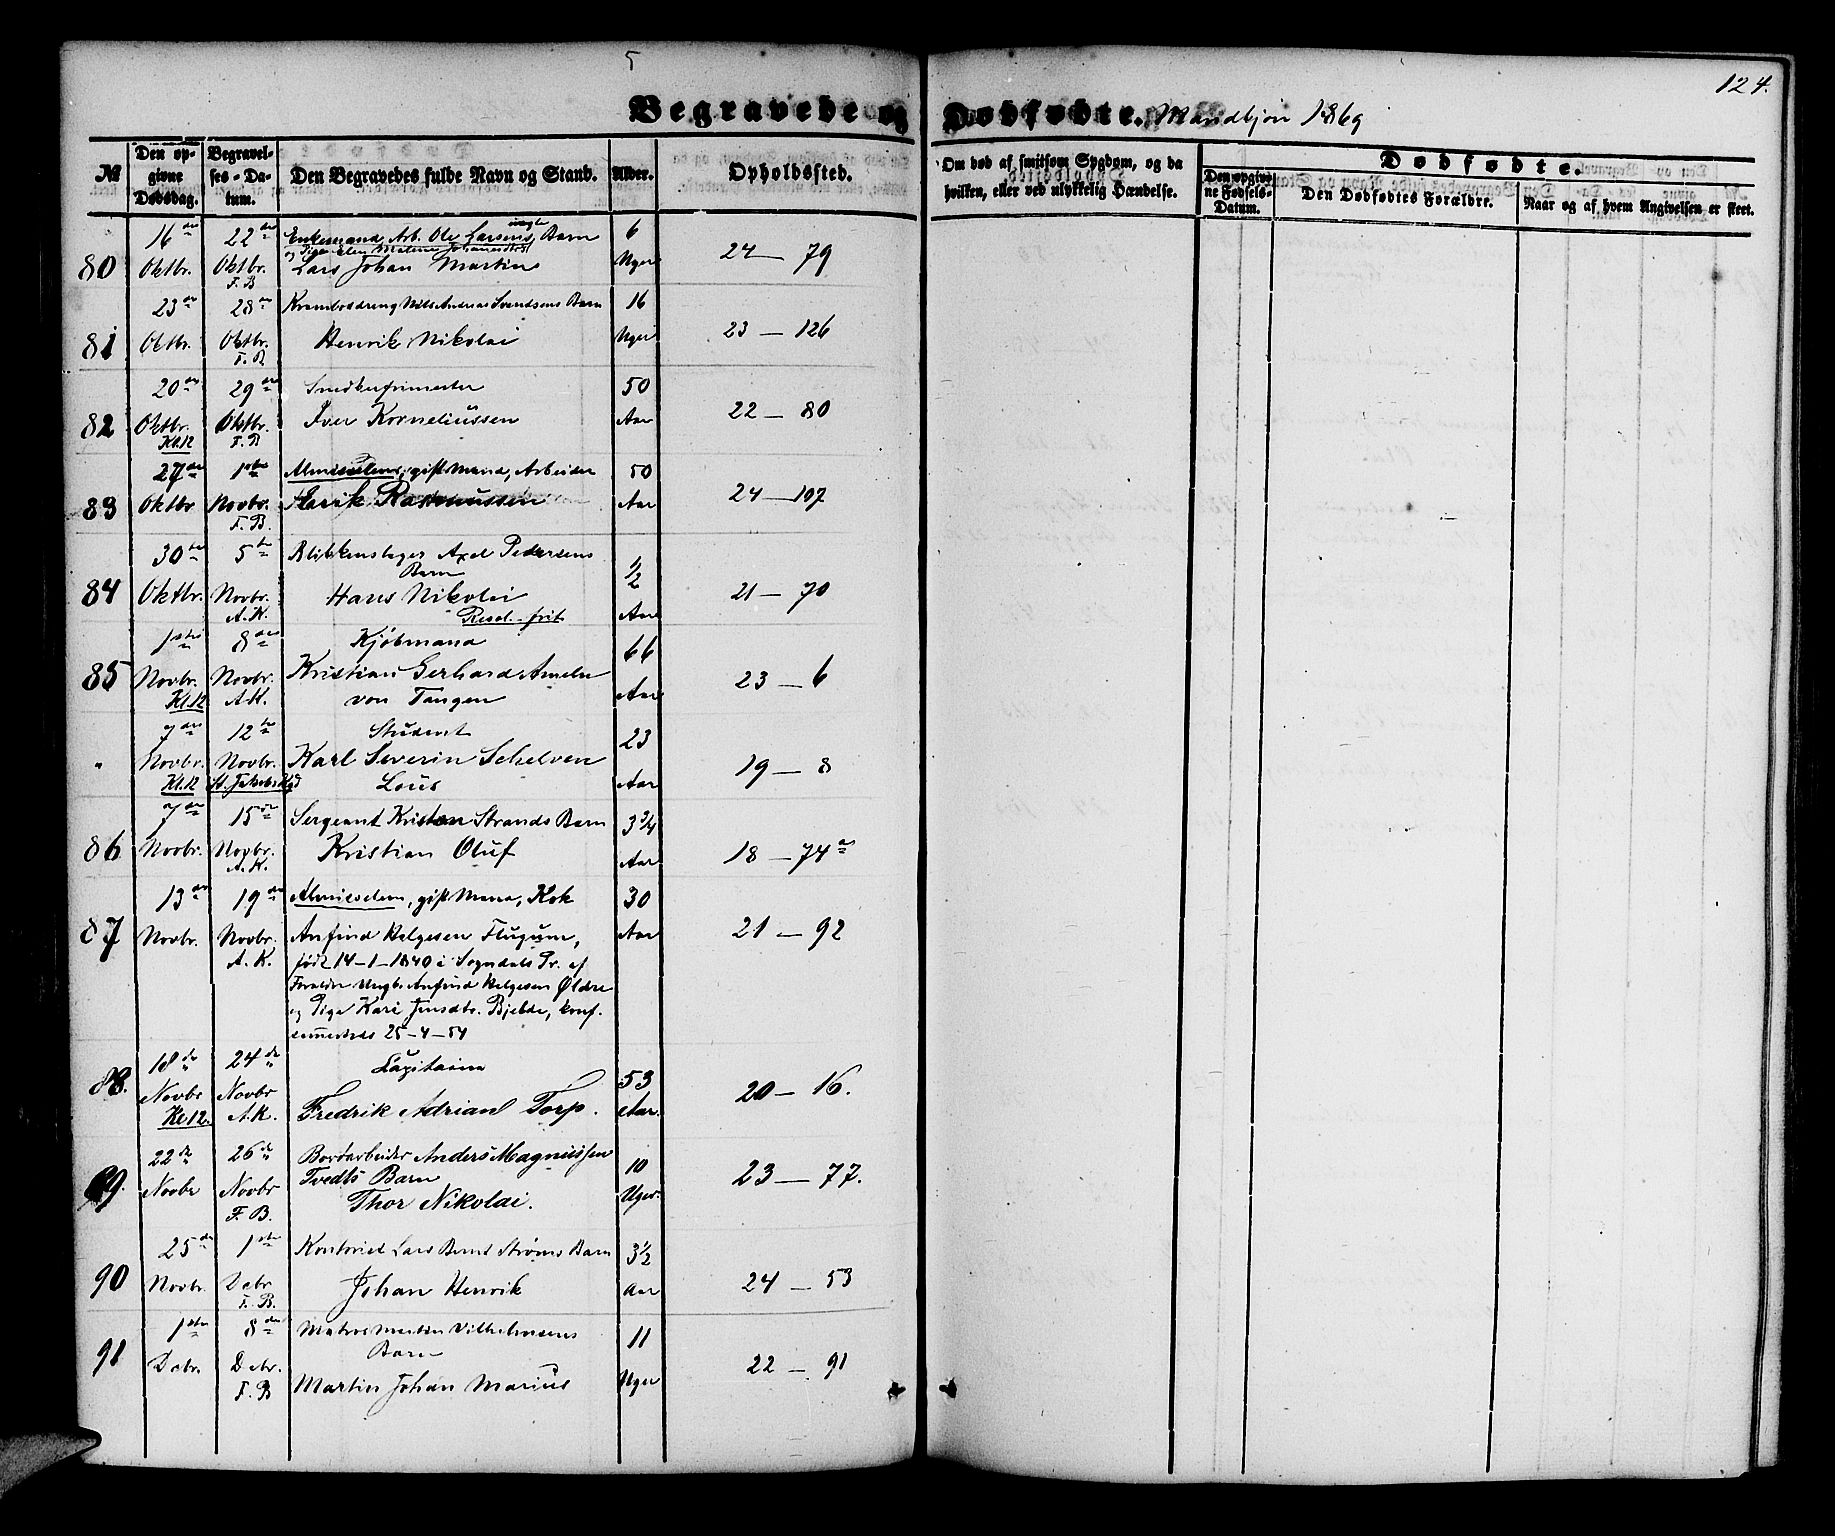 5
124.
Begravede og Dødfødte. Mandkjøn 1869
№
Den opgivne Dødsdag.
Begravelses-Datum.
Den Begravedes fulde Navn og Stand.
Alder.
Opholdssted.
Om død af smitsom Sygdom, og da hvilken, eller ved ulykkelig Hændelse.
Dødfødte.
Den opgivne Fødsels-Datum.
Den Dødfødtes Forældre.
Naar og af hvem Angivelsen er skeet.
80 16de Oktbr. 22de Oktbr. F. B. Enkemand, Arb. Ole Larsens uægte Barn
og Pige Elen Malene Johannesd.
Lars Johan Martin 6 Uger 24 — 79
81 23de Oktbr. 28de Oktbr. F. B. Krambodreng Nils Andreas Svendsens Barn
Henrik Nikolai 16 Uger 23 — 126
82 20de Oktbr. Kl. 12 29de Oktbr. F. B. Snedkermester
Iver Korneliussen 50 Aar 22 — 80
83 27de Oktbr 1ste Novbr. F. B. Almisselem, gift Mand, Arbeider
Henrik Rasmussen 50 Aar 24 — 107
84 30te Oktbr. 5te Novbr. A. K. Blikkenslager Axel Pedersens
Barn
Hans Nikolai
Resol. frit 1/2 Aar 21 — 70
85 1ste Novbr. Kl. 12 8de Novbr. A. K. Kjøbmand
Kristian Gerhard Ameln
von Tangen 66 Aar 23 — 6
" 7de Novbr. Kl. 12 12te Novbr. St. Jakobs Kgd Student
Karl Severin Schelven
Lous 23 Aar 19 — 8
86 7de Novbr. 15de Novbr. A. K. Sergeant Kristen Strands Barn
Kristian Oluf 3 3/4 Aar 18 — 74a
87 13de Novbr. 19de Novbr. A. K. Almisselem, gift Mand, Kok
Anfind Helgesen Flugum,
født 14-1-1840 i Sogndals Pr. af
Forældre Ungk. Anfind Helgesen Øldre
og Pige Kari Jensdtr. Bjelde, konf.
sammesteds 25-4-54 30 Aar 21 — 92
88. 18de Novbr Kl. 12. 24de Novbr A. K. Capitaine
Fredrik Adrian Torp. 53 Aar. 20 — 16.
89. 22de Novbr 26de Novbr F. B. Bordarbeider Anders Magnussen
Tvedts Barn
Thor Nikolai. 10 Uger. 23 — 77.
90 25de Novbr. 1ste Dcbr F. B. Kontorist Lars Bernt Strøms Barn
Johan Henrik 3 1/2 Aar 24 — 53
91 1ste Dcbr. 8de Dcbr. F. B Matros Martin Vilhelmsens
Barn
Martin Johan Marius 11 Uger 22 — 91